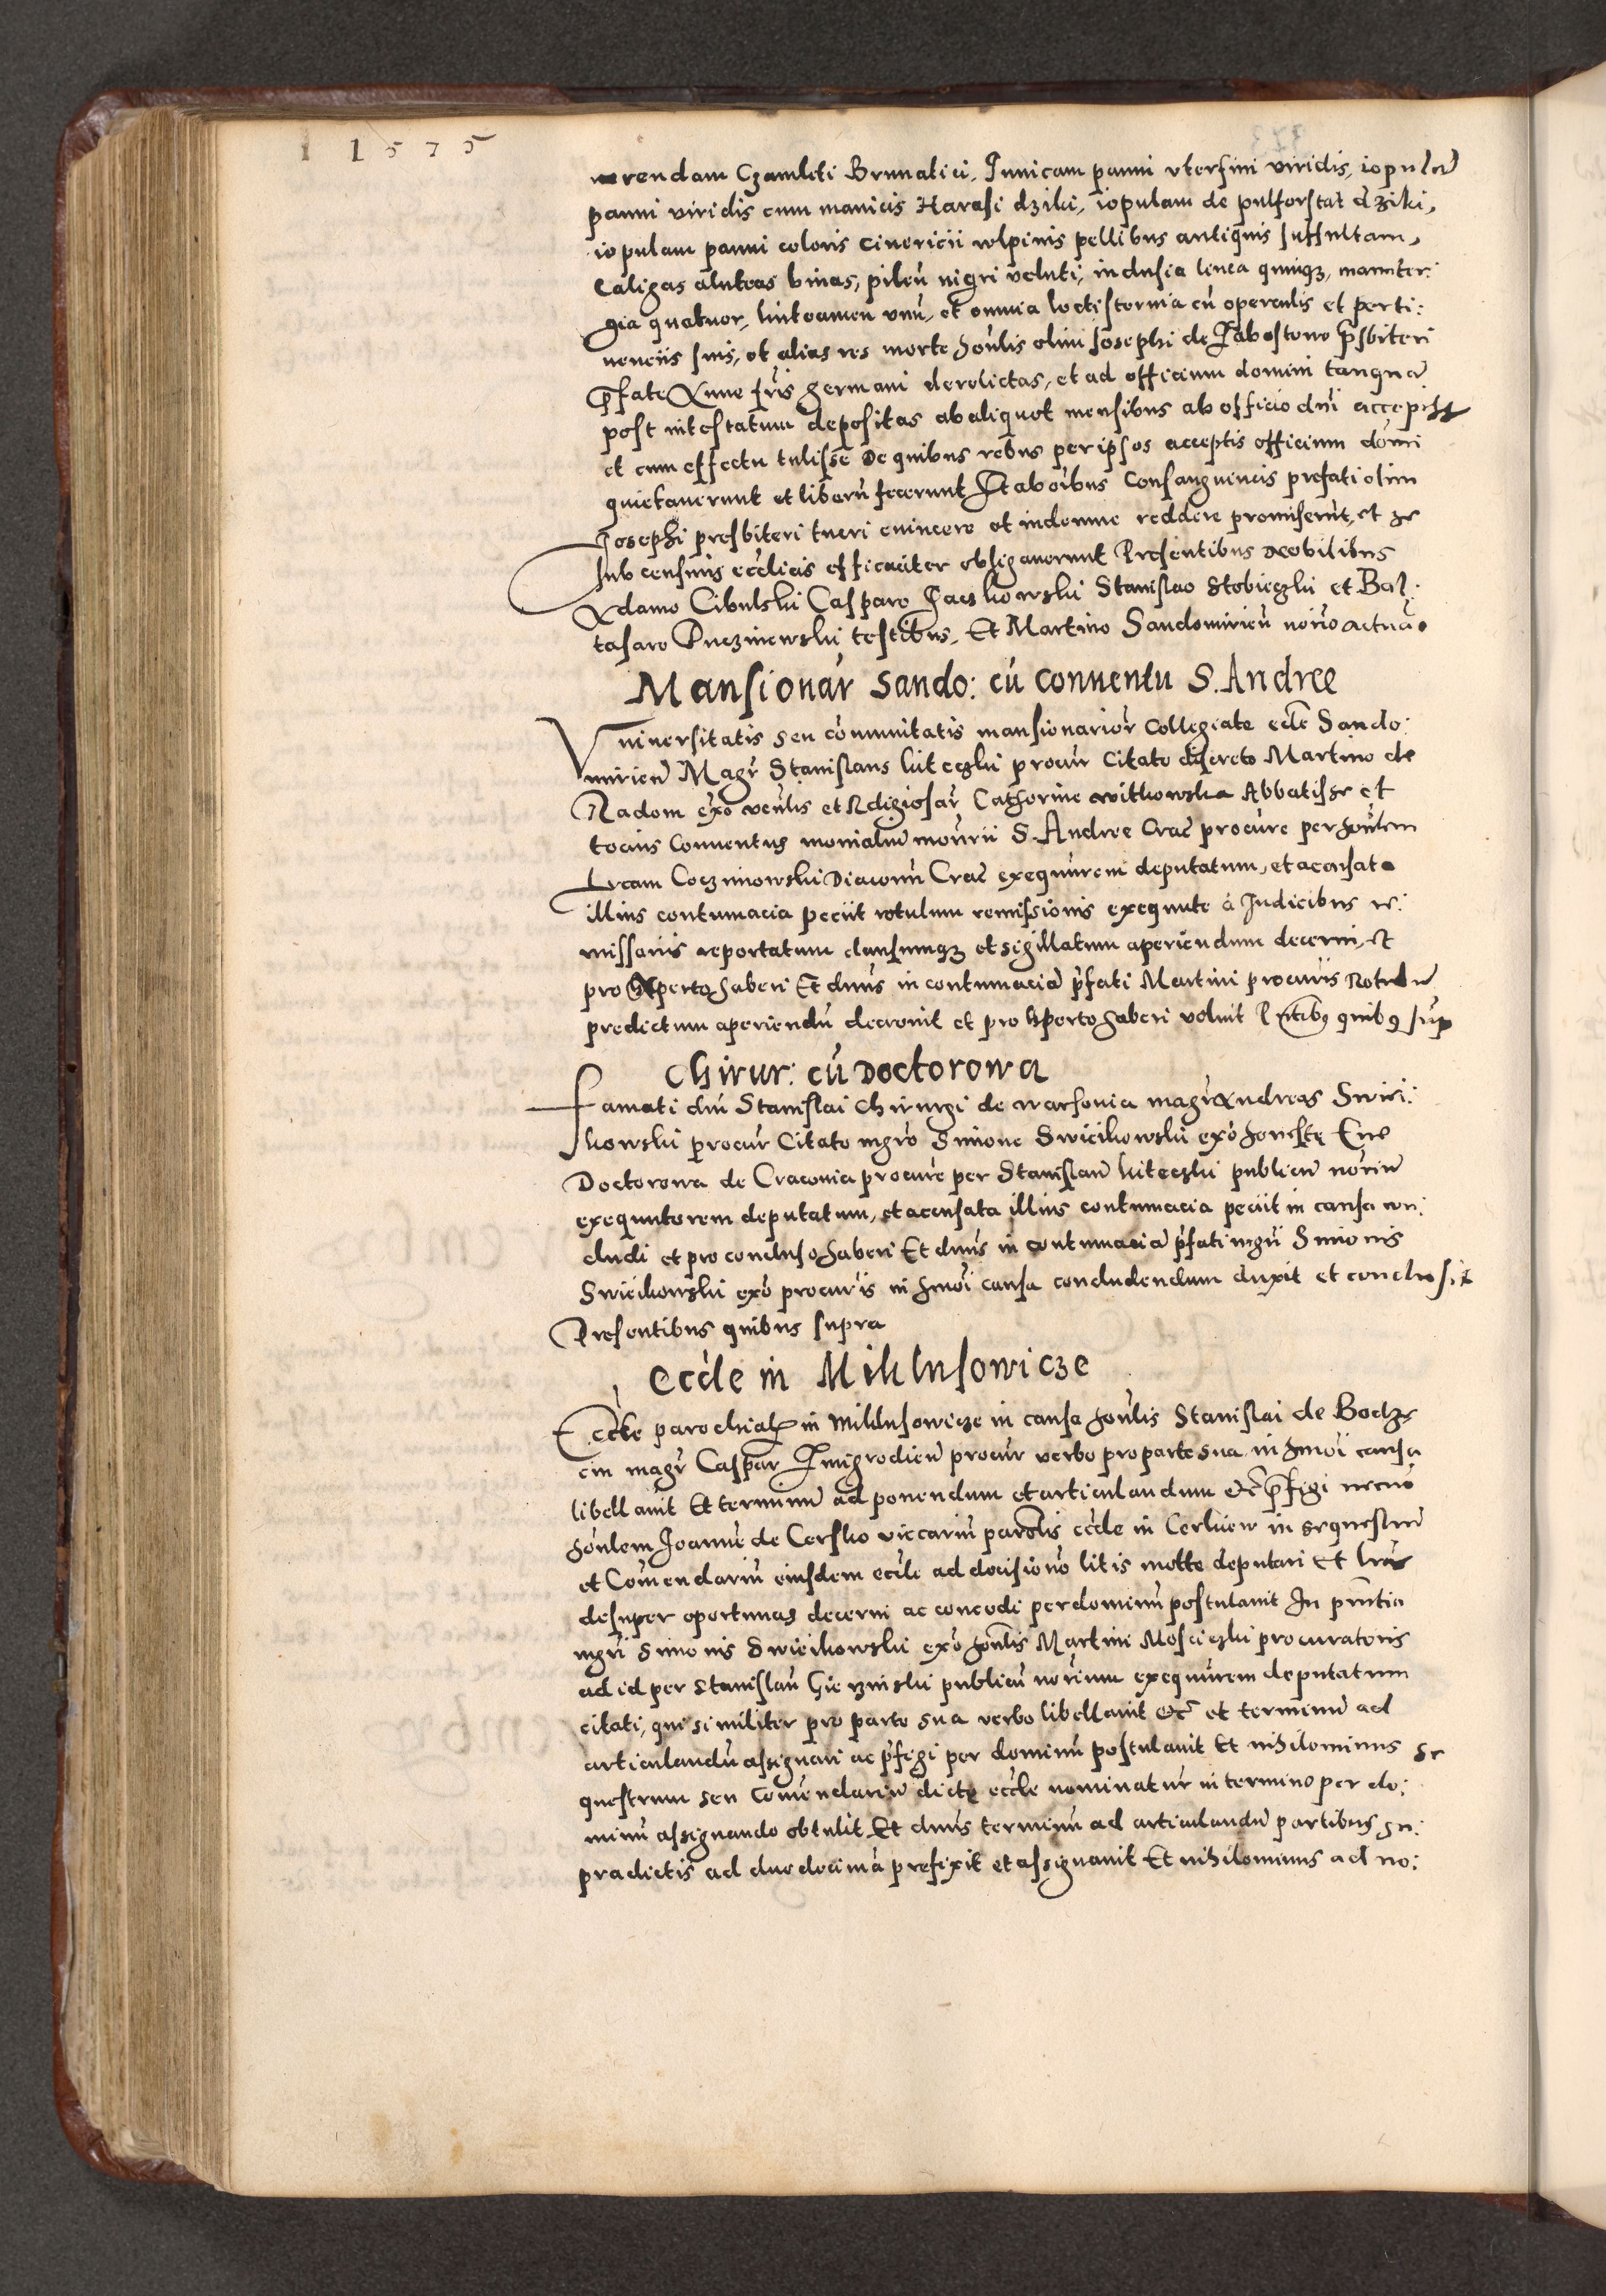 1 1 5 7 5
rendam Czamleti Brunatici, Tunicam panni vterfini viridis, iopulā
panni viridis cum manicis Harasi dziki, iopulam de pulforstat dziki,
iopulam panni coloris cinericii wlpinis pellibus antiquis suffultam,
Caligas aluteas binas, pileū nigri veluti, indusia linea quinqz, manuter:
gia quatuor, linteamen vnū, et omnia lectisternia cū operculis et perti:
nenciis suis, et alias res morte hōnlis olim Josephi de presbiteri
p̄fate Anne fr̄is germani derelictas, et ad officium domini tanquā
post intestatum depositas ab aliquot mensibus ab officio dn̄i
et cum effectu tulisse De quibus rebus per ipsos acceptis officium domi
quietauerunt et liberū fecerunt Et ab oībus Consanguineis prefati olim
Josephi presbiteri tueri euincere et indemne reddere promiserūt, et se
sub censuris eccl̄icis efficaciter obligauerunt Presentibus Nobilibus
Adamo Cibulski Casparo Stanislao et Bal:
tasaro testibus, Et Martino Sandomirieñ nōrio actuā
Mansionar̄ Sando: cū conuentu S. Andree
Vniuersitatis seu cōmunitatis mansionarior̄ Collegiate eccl̄e Sando:
mirieñ Magr̄ Stanislaus procur̄ Citato discreto Martino de
Radom exo venlis et Religiosar̄ Catherine witkowska Abbatisse et
tocius Conuentus monialiū monrii S. Andree Crac̄ procur̄e per honlem
Lucam Diacoñum Crac̄ exequūrem deputatum, et accusata
illius contumacia peciit rotulum remissionis exequute à Judicibus re:
missariis reportatum clausumqz et sigillatum aperiendum decerni, et
pro Aperto haberi Et dnūs in contumaciā p̄fati Martini procur̄is Rotulū
predictum aperiendū decreuit et pro Aperto haberi voluit Pn̄tibꝰ quibꝰ sup̄
Chirur: cū Doctorowa
Famati dn̄i Stanislai Chirurgi de warsouia magr̄ Andreas Swici:
kowski procur̄ Citato mgr̄o Simone Swicikowski exo honeste Eue
Doctorowa de Cracouia procur̄e per Stanislaū publicū nōriū
exequutorem deputatum, et accusata illius contumacia peciit in causa con:
cludi et pro concluso haberi Et dnūs in contumaciā p̄fati mgr̄i Simonis
Swicikowski exo procur̄is in hm̄oi causa concludendum duxit et conclusit
Presentibus quibus supra
Eccl̄e in Mikluſowicze
Eccl̄e parochialis in Miklusowicze in causa honlis Stanislai de Bodz
cin magr̄ Caspar procur̄ verbo pro parte sua in hm̄oi causa
libellauit Et terminū ad ponendum et articulandum etc̄ p̄figi necnō
honlem Joannē de Cersko viccariū parōlis eccl̄e in in sequestrū
et Cōmendariū eiusdem eccl̄e ad decisionē litis motte deputari Et lr̄as
desuper oportunas decerni ac concedi per dominū postulauit In pn̄tia
mgr̄i Simonis Swicikowski exo honlis Martini procuratoris
ad id per Stanislaū publicū nōrium exequūrem deputatum
citati, qui similiter pro parte sua verbo libellauit etc̄ et terminū ad
articulandū assignari ac p̄figi per dominū postulauit Et nihilominus se
questrum seu Cōmendariū dicte eccl̄e nominatur̄ in termino per do:
minū assignando obtulit Et dnūs terminū ad articulandū partibus su:
pradictis ad duodecimā prefixit et assignauit Et nihilominus ad no: